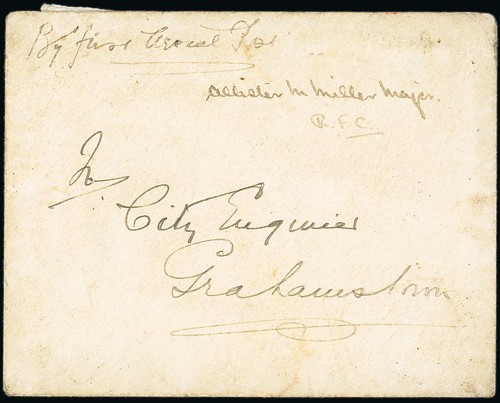 By first Aerial Post
Allister M Miller Major.
R.F.C.
To
City Engineer
Grahamstown